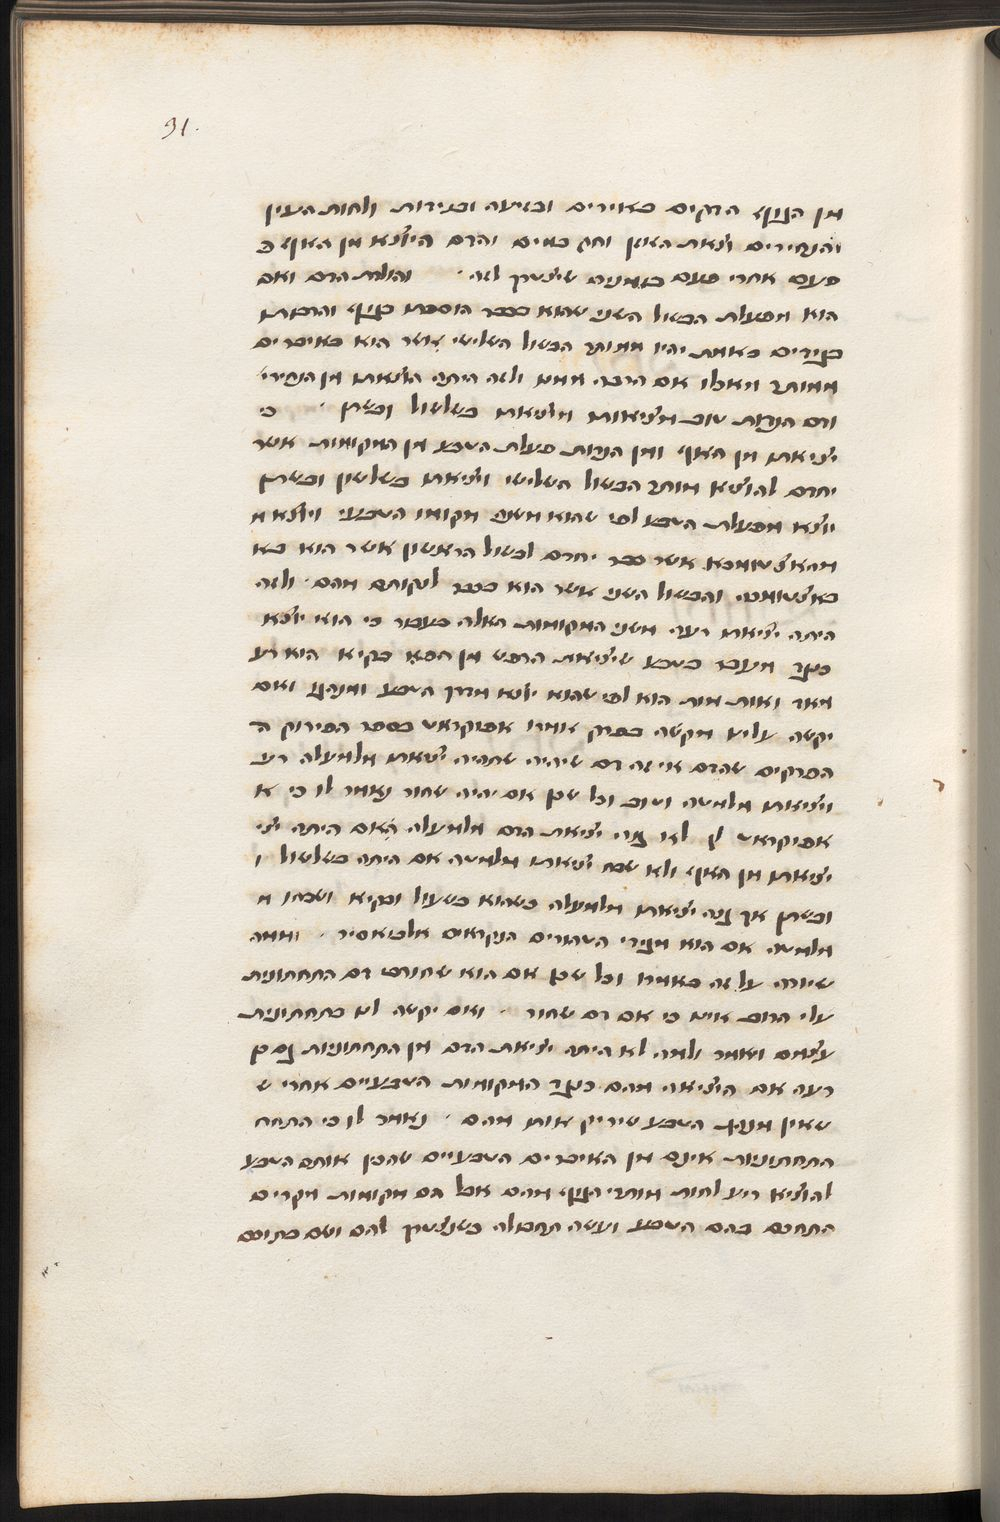 91.
מן הגוף הדקים באוירים ובזיעה ובנידות ולחות העין
והנחירים וצאת האזן וחם במים והדם היוצא מן האף כ
פעם אחרי פעם כמנים שיצטרך לזה · והולת הדם ואם
הוא מפעלת הבשול השני שהוא בכבד הוספת בגוף והרבות
בגידים באמת יהיו ממותר הבשול השלישי אשר הוא באיברים
ממותר מאכלו אם הרבה ממנו ולזה היתה הוצאת מן הנחירי
ודם הנדות טוב מציאות מוצאת בשלשול ובשתן · כי
יציאת מן האף ומן הנדות פעלת הטבע מן המקומות אשר
יחדם להוציא מותר הבשול השלישי ויציאת בשלשול ובשתן
יוצא מפעלת הטבע לפי שהוא משנה מקומו הטבעי ויוצא מ
מהאצטומכא אשר כבר יחדם לבשול הראשון אשר הוא בא
באצטומכא והבשול השני אשר הוא בכבד לקוחם מהם · ולזה
היתה יציאת רעה משני המקומות האלה בעבור כי הוא יוצא
כנגד מעבר בטבע שיציאת הרפש מן הפה בקיא הוא רע
מאד ואות מות הוא לפי שהוא יוצא מדרך הטבע ומנהגו ואם
יקשה עלינו מקשה בפרק אומרו אפוקראט בספר הפירוק ה
הפרקים שהדם אי זה דם שיהיה שתהיה יציאת מלמעלה רע
ויציאת מלמטה וטוב וכל שכן אם יהיה שחור נאמר לו כי א
אפוקראט לא גנה יציאת הדם מלמעלה האם היתה יצי
יציאת מן האף ולא שבח יציאת מלמטה אם היתה בשלשול ו
ובשתן אך גנה יציאת מלמעלה כשהוא בשעול ובקיא ושבחו מ
מלמטה אם הוא מגידי הטחורים הנקראים אלבואסיר · וממה
שיורה על זה באמרו וכל שכן אם הוא שחורם דם התחתונית
על הרוב אינו כי אם דם שחור · ואם יקשה לנו בתחתונית
עצמם ואמר ולמה לא היתה יציאת הדם מן התחתוניות גם כן
רעה אם היציאה מהם כנגד המקומות הטבעיים אחרי ש
שאין מנהג הטבע שיריק אותו מהם · נאמר לו כי התחת
התחתוניות אינם מן האיברים הטבעיים שהכן אותם הטבע
להוציא ריע לחות מותרי הגוף מהם אבל הם מקומות מקריים
התחכם בהם הטבע ועשה תחבולה כשנצטרך להם ושם בתוכם